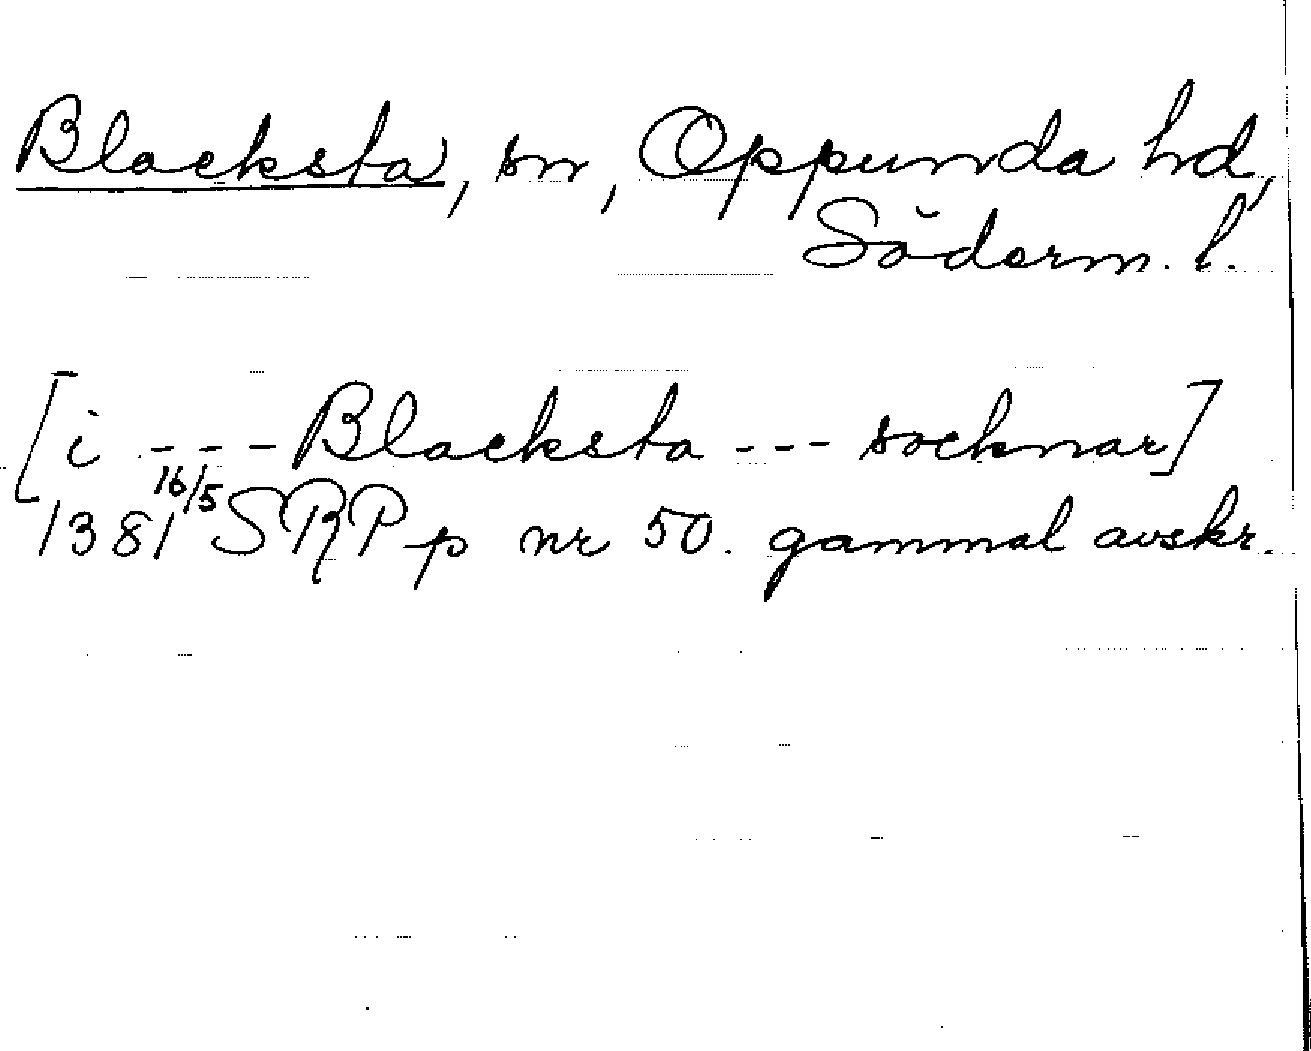 Blacksta, sn, Oppunda hd,
Söderm. l.
[i --- Blacksta --- socknar]
1381 16/5 SRPp nr 50. gammal avskr.